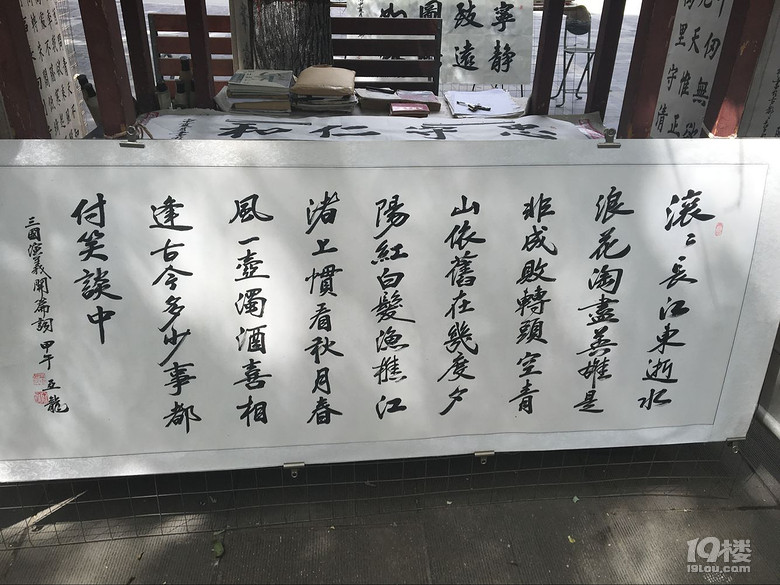 滾〻長江東逝水
浪花淘盡英雄是
非成敗轉頭空青
山依舊在幾度夕
陽紅白髮漁樵江
渚上慣看秋月春
風一壺濁酒喜相
逢古今多少事都
付笑談中
三國演義開篇詞 甲午
寧靜
致遠
忠守仁和
19楼
19lou.com